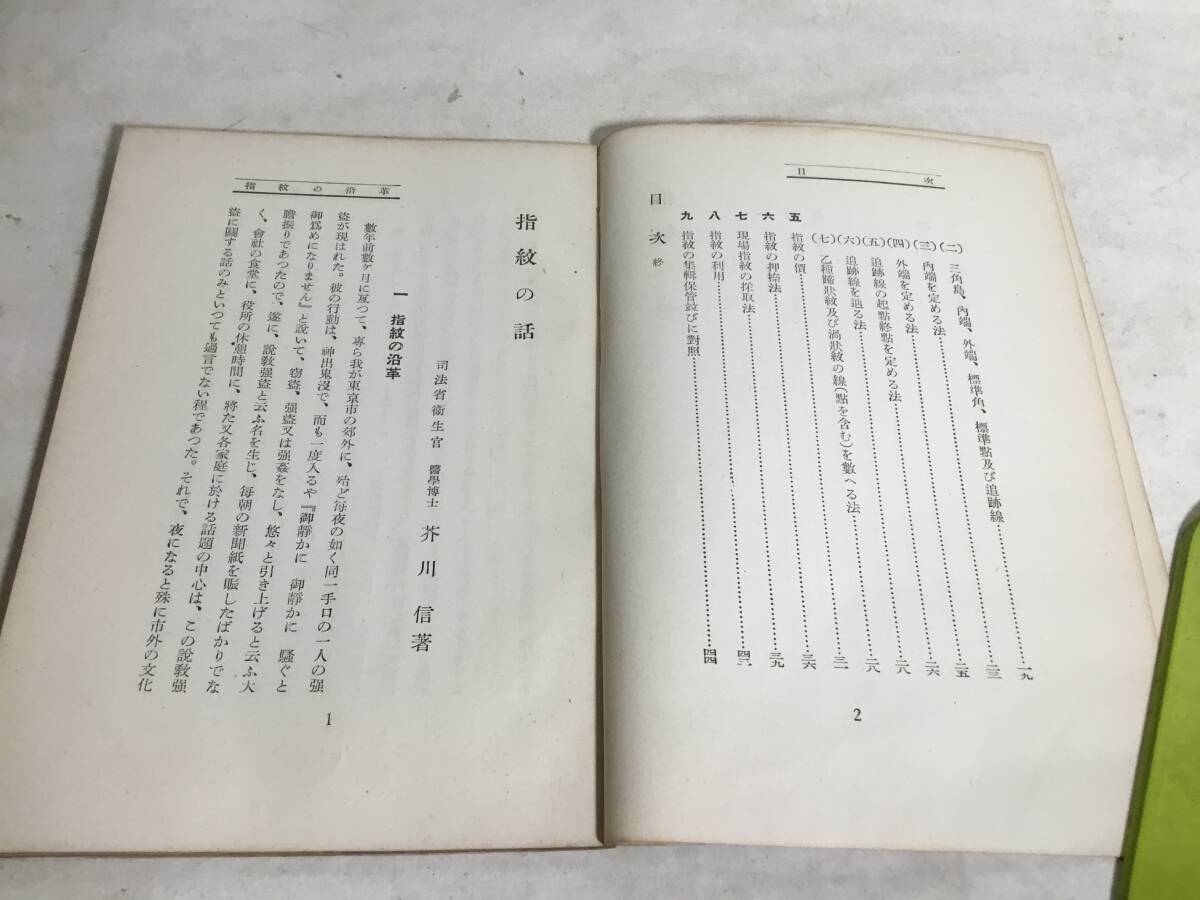 目次
(二) 三角島、內端、外端、標準角、標準點及び追跡線……一九
(三) 內端を定める法……二三
(四) 外端を定める法……二五
(五) 追跡線の起點終點を定める法……二六
(六) 追跡線を辿る法……二八
(七) 乙種蹄狀紋及び渦狀紋の線(點を含む)を數へる法……二八
五 指紋の價……三一
六 指紋の押捺法……三六
七 現場指紋の採取法……三九
八 指紋の利用……四三
九 指紋の集輯保管竝びに對照……四四
目次 終
2
指紋の沿革
指紋の話
司法省衞生官 醫學博士 芥川信著
一 指紋の沿革
數年前數ヶ月に亙つて、專ら我が東京市の郊外に、殆ど每夜の如く同一手口の一人の强
盜が現はれた。彼の行動は、神出鬼沒で、而も一度入るや『御靜かに 御靜かに 騷ぐと
御爲めになりません』と說いて、竊盜、强盜又は强姦をなし、悠々と引き上げると云ふ大
膽振りであつたので、遂に、說敎强盜と云ふ名を生じ、每朝の新聞紙を賑したばかりでな
く、會社の食堂に、役所の休憩時間に、將た又各家庭に於ける話題の中心は、この說敎强
盜に關する話のみといつても過言でない程であつた。それで、夜になると殊に市外の文化
1